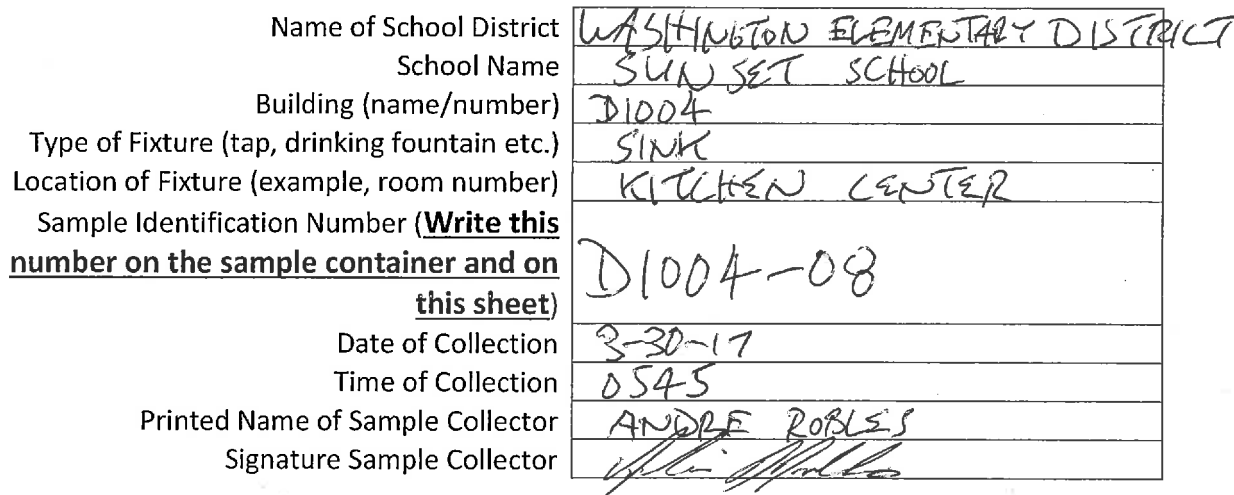 Name of School District WASHINGTON ELEMENTARY DISTRICT
School Name SUNSET SCHOOL
Building (name/number) D1004
Type of Fixture (tap, drinking fountain etc.) SINK
Location of Fixture (example, room number) KITCHEN CENTER
Sample Identification Number (Write this
number on the sample container and on
this sheet) D1004-08
Date of Collection 3-30-17
Time of Collection 0545
Printed Name of Sample Collector ANDRE ROBLES
Signature Sample Collector